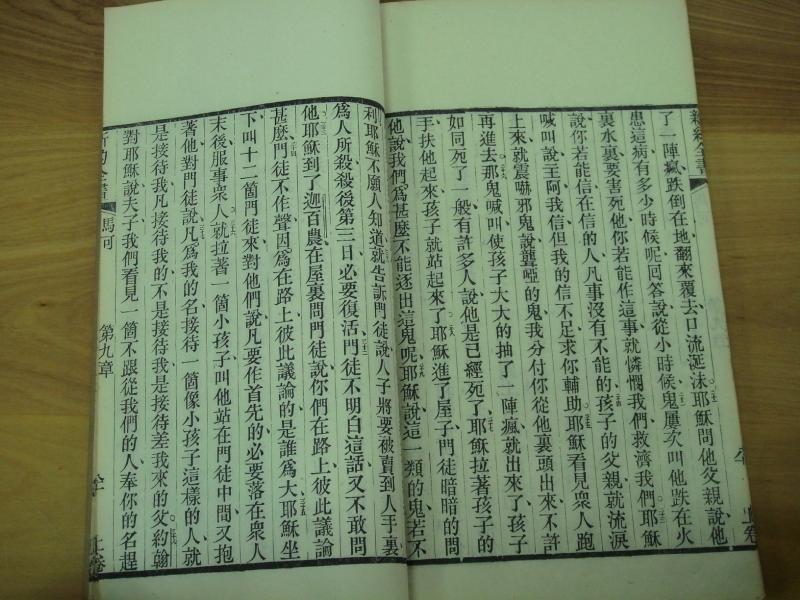 新約全書
了一陣瘋跌倒在地翻來覆去口流涎沫耶穌問他父親說他
患這病有多少時候呢回答說從小時候鬼屢次叫他跌在火
裏水裏要害死他你若能作這事就憐憫我們救濟我們耶穌
說你若能信在信的人凡事沒有不能的孩子的父親就流淚
喊叫說主阿我信但我的信不足求你輔助耶穌看見衆人跑
上來就震嚇邪鬼說聾啞的鬼我分付你從他裏頭出來不許
再進去那鬼喊叫使孩子大大的抽了一陣瘋就出來了孩子
如同死了一般有許多人說他是已經死了耶穌拉著孩子的
手扶他起來孩子就站起來了耶穌進了屋子門徒暗暗的問
他說我們爲甚麼不能逐出這鬼呢耶穌說這一類的鬼若不
利耶穌不願人知道就告訴門徒說人子將要被賣到人手裏
爲人所殺殺後第三日必要復活門徒不明白這話又不敢問
他耶穌到了迦百農在屋裏問門徒說你們在路上彼此議論
甚麼門徒不作聲因爲在路上彼此議論的是誰爲大耶穌坐
下叫十二箇門徒來對他們說凡要作首先的必要落在衆人
末後服事衆人就拉著一箇小孩子叫他站在門徒中間又抱
著他對門徒說凡爲我的名接待一箇像小孩子這樣的人就
是接待我凡接待我的不是接待我是接待差我來的父約翰
對耶穌說夫子我們看見一箇不跟從我們的人奉你的名趕
新約全書 馬可 第九章 上卷